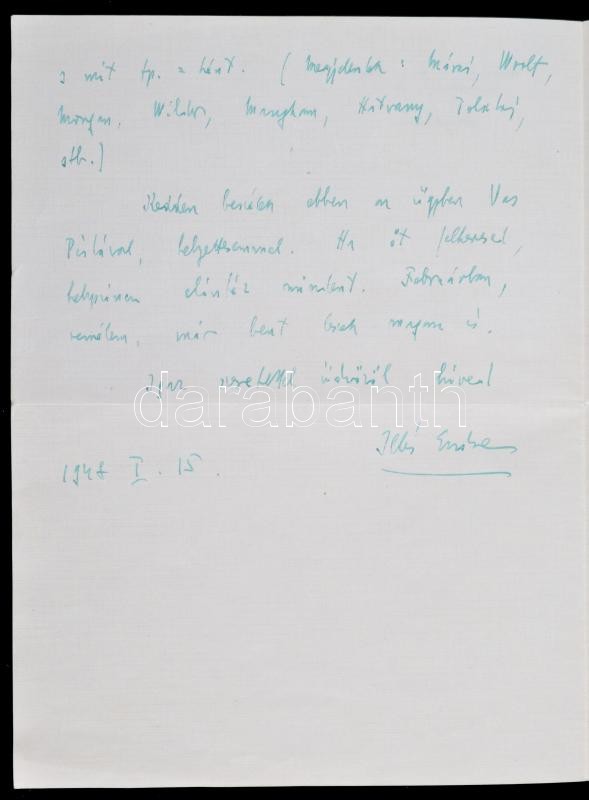 s mit tp. a hént. (Megjelentek: Márai, Woolf,
Morgan, Wilder, Maugham, Hatvany, Tolsztoj,
stb.)
Kedden beszélek ebben az ügyben Vas
Pistával, helyettesemmel. Ha őt felkeresed,
elintéz mindent. Februárban,
remélem, már bent leszek magam is.
Igaz szeretettel üdvözöl híved
darabanth
Illés Endre
1948 I. 15.